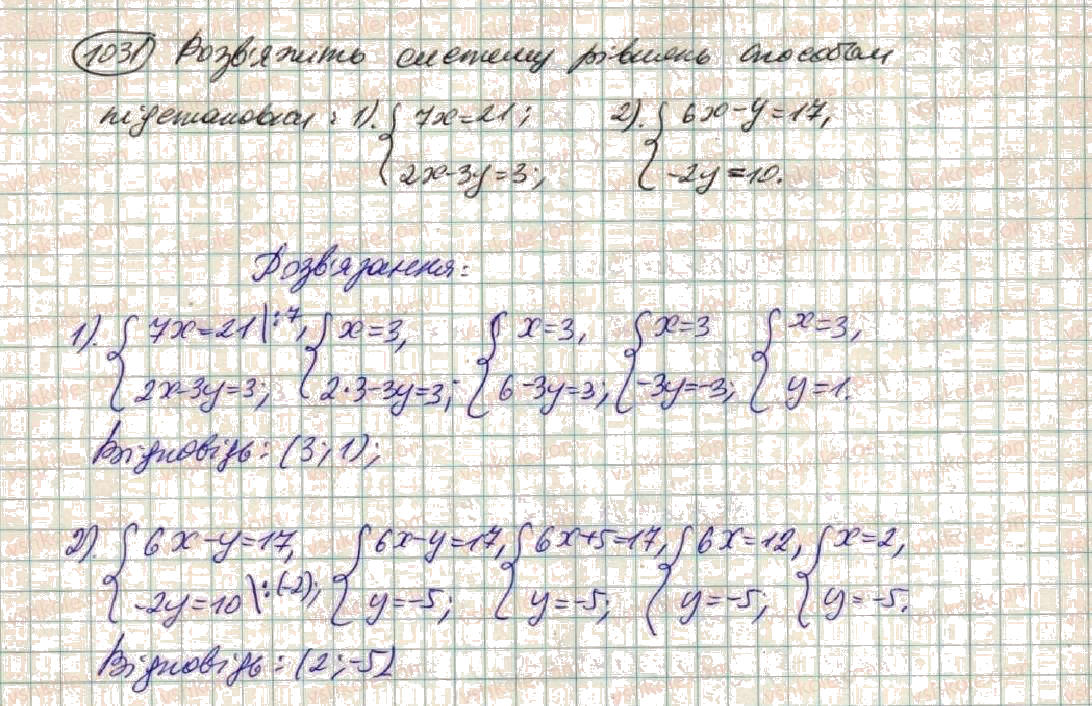 1031) Розв'яжіть систему рівнянь способом
підстановки: 1). { 7x=21; 2x-3y=3; 2). { 6x-y=17, -2y=10.
Розв'язання:
1). { 7x=21|:7, 2x-3y=3; { x=3, 2·3-3y=3; { x=3, 6-3y=3; { x=3 -3y=-3; { x=3, y=1.
Відповідь: (3;1);
2) { 6x-y=17, -2y=10|:(-2); { 6x-y=17, y=-5; { 6x+5=17, y=-5; { 6x=12, y=-5; { x=2, y=-5.
Відповідь: (2;-5)